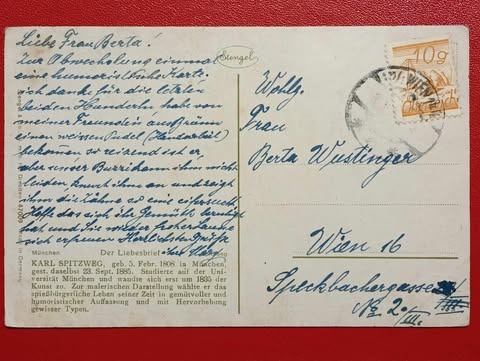 Liebe Frau Berta!
Zur Abwechslung einmal
eine humoristische Karte.
ich danke für die letzten
beiden Hunderln hab von
meiner Freundin aus
einen weissen Pudel
bekommen so reizend ist er
aber unser Burzi kann ihn nicht
leiden, knurrt ihn an und zeigt
ihm die Zähne so eine eifersucht
Hoffe das sich ihr Gemüt beruhigt
hat und Sie wieder froher
sich erfreuen Herzlichste Grüsse
Stengel
10g
WIEN
Wohlg.
Frau
Berta Wustinger
Wien 16
Speckbachergasse
No 2
III.
München
Der Liebesbrief
KARL SPITZWEG, geb. 5. Febr. 1808 in München,
gest. daselbst 23. Sept. 1885. Studierte auf der Uni-
versität München und wandte sich erst um 1835 der
Kunst zu. Zur malerischen Darstellung wählte er das
spießbürgerliche Leben seiner Zeit in gemütvoller und
humoristischer Auffassung und mit Hervorhebung
gewisser Typen.